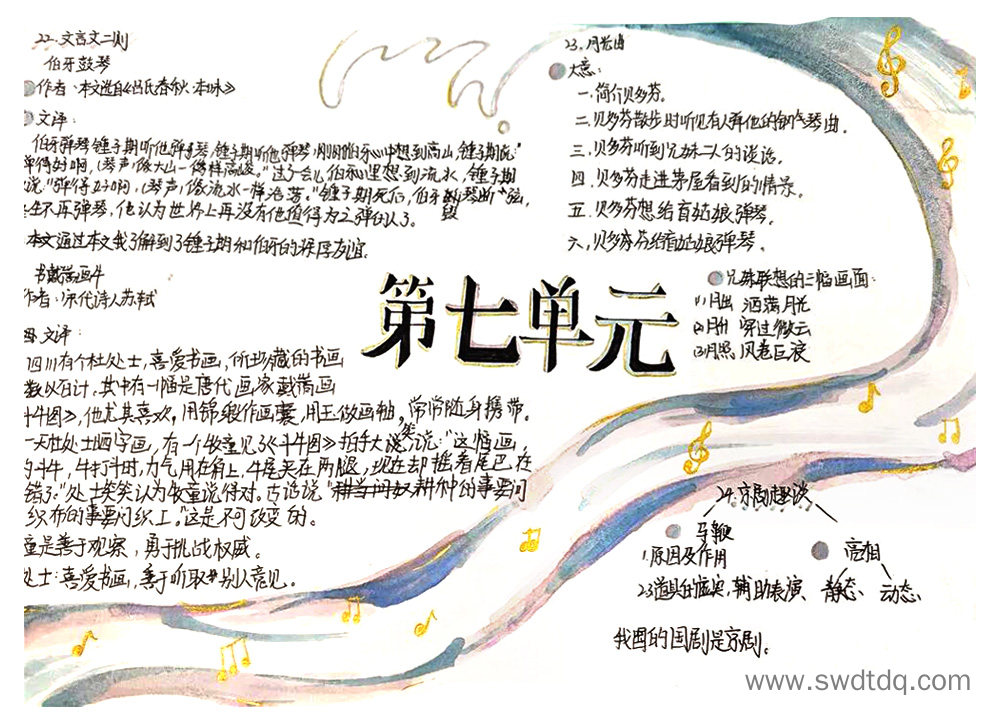 22.文言文二则
伯牙鼓琴
作者:本文选自《吕氏春秋·本味》
文评:
伯牙弹琴锺子期听他弹琴,锺子期听他弹琴,刚刚伯牙心中想到高山,锺子期说:"
弹得好啊,(琴声)像大山一样高峻。"过了一会儿伯牙心里想到流水,锺子期
说"弹得好啊,(琴声)像流水一样浩荡。"锺子期死后,伯牙毁琴断弦,
生不再弹琴,他认为世界上再没有他值得为之弹的人了。
本文通过本文我了解到了锺子期和伯牙的深厚友谊
书戴嵩画牛
作者:宋代诗人苏轼
文评:
四川有个杜处士,喜爱书画,所珍藏的书画
数以百计,其中有一幅是唐代画家戴嵩画
斗牛图》,他尤其喜欢,用锦缎作画囊,用玉做画轴,常常随身携带。
一天杜处士晒字画,有一个牧童见了《斗牛图》拍手大笑说:"这幅画,
斗牛,牛打斗时,力气用在角上,牛尾夹在两腿,现在却摇着尾巴,在
错了."处士笑笑认为牧童说得对。古话说"耕当问奴耕种的事要问
织布的事要问织工。"这是不可改变的。
童是善于观察,勇于挑战权威。
处士:喜爱书画,善于听取别人意见。
第七单元
23.月光曲
大意:
一.简介贝多芬。
二.贝多芬散步时听见有人弹他的钢琴曲.
三.贝多芬听到兄妹二人的谈话.
四.贝多芬走进茅屋看到的情景。
五.贝多芬想给盲姑娘弹琴。
六.贝多芬给盲姑娘弹琴。
兄妹联想的三幅画面:
(1)月出 洒满月光
(2)月升 穿过微云
(3)月照 风卷巨浪
24.京剧趣谈
马鞭
亮相
1.原因及作用
2.道具的虚实,辅助表演、
静态、
动态、
我国的国剧是京剧.
www.swdtdq.com